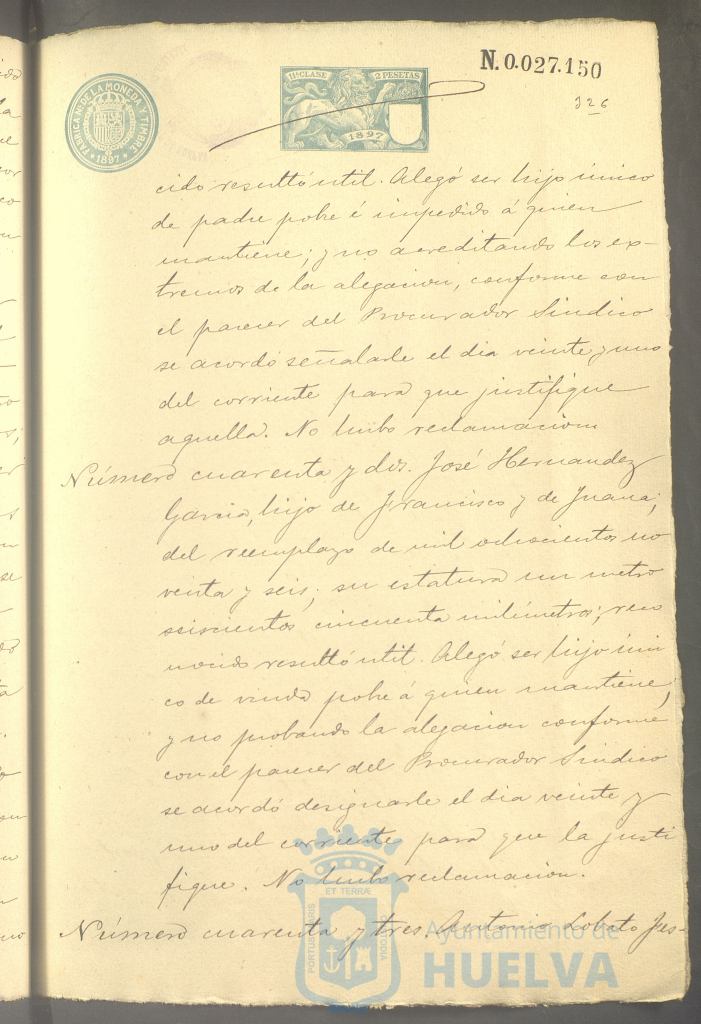 N.0.027.150
326
FABRICA N. DE LA MONEDA Y TIMBRE
1897
11ª CLASE 2 PESETAS
1897
cido resultó util. Alegó ser hijo único
de padre pobre é impedido á quien
mantiene; y no acreditando los ex-
tremos de la alegacion, conforme con
el parecer del Procurador Sindico
se acordó señalarle el dia veinte y uno
del corriente para que justifique
aquella. No hubo reclamacion
Número cuarenta y dos. José Hernandez
Garcia, hijo de Francisco y de Juana;
del reemplazo de mil ochocientos no
venta y seis, su estatura un metro
seiscientos cincuenta milimetros; reco
nocido resultó util. Alegó ser hijo úni
co de viuda pobre á quien mantiene,
y no probando la alegacion conforme
con el parecer del Procurador Sindico
se acordó designarle el dia veinte y
uno del corriente para que la justi
fique. No hubo reclamacion.
Número cuarenta y tres. Antonio Lobato
Ayuntamiento de
HUELVA
PORTUS MARIS ET TERRÆ CUSTODIA